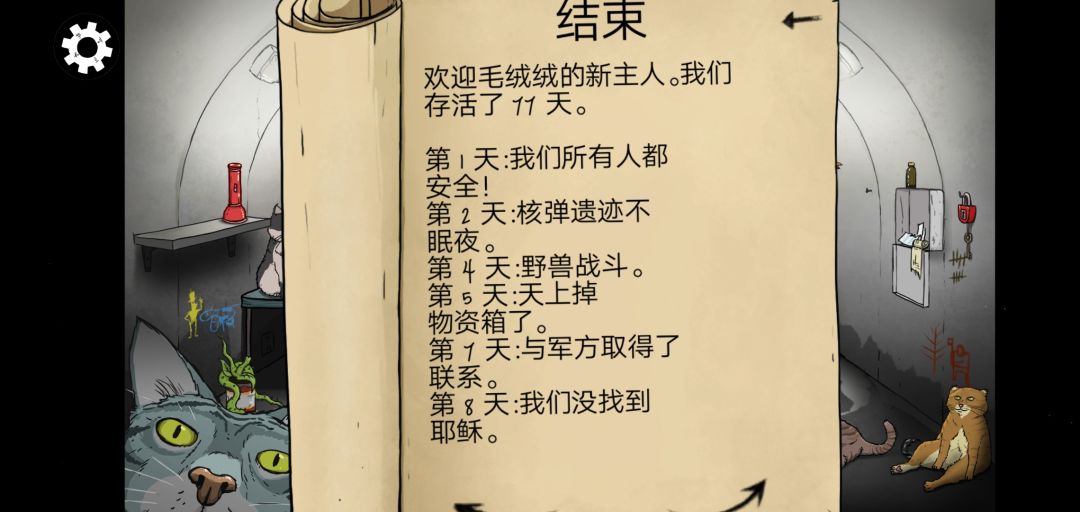 结束
欢迎毛绒绒的新主人。我们
存活了 11 天。
第 1 天:我们所有人都
安全!
第 2 天:核弹遗迹不
眠夜。
第 4 天:野兽战斗。
第 5 天:天上掉
物资箱了。
第 7 天:与军方取得了
联系。
第 8 天:我们没找到
耶稣。